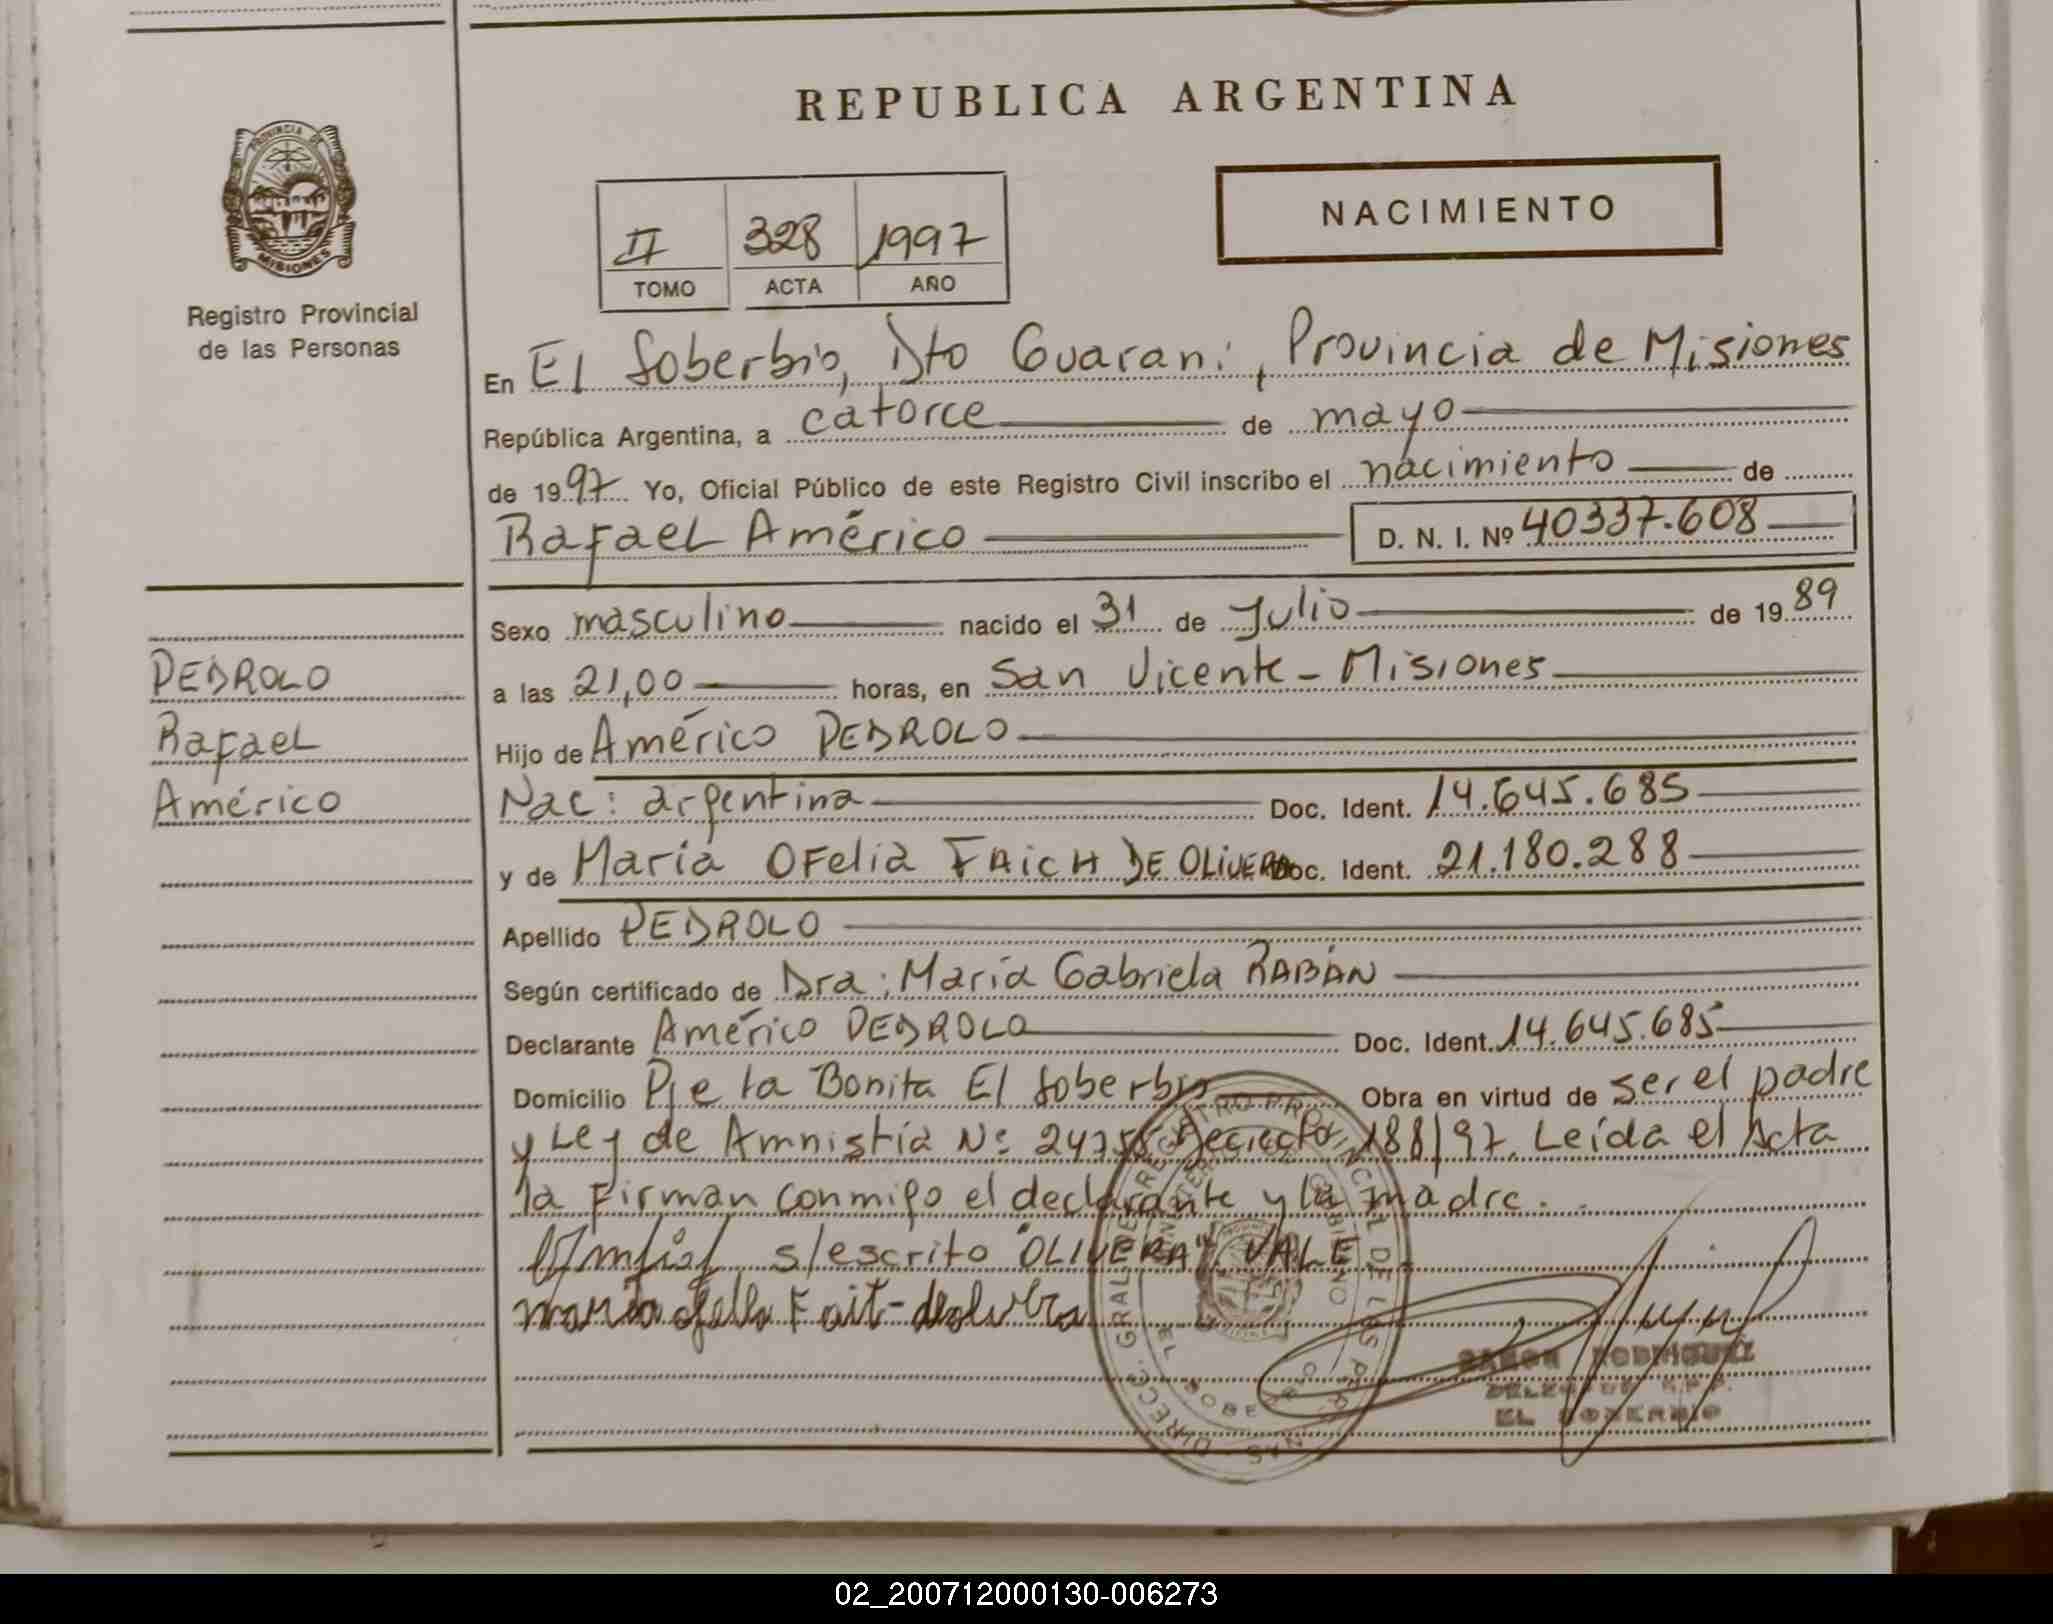 REPUBLICA ARGENTINA
PROVINCIA DE
MISIONES
Registro Provincial
de las Personas
NACIMIENTO
II 328 1997
TOMO ACTA AÑO
En El Soberbio, Dto Guaraní, Provincia de Misiones
República Argentina, a catorce de mayo
de 1997 Yo, Oficial Público de este Registro Civil inscribo el nacimiento de
Rafael Américo D. N. I. Nº 40337.608
Sexo masculino nacido el 31 de Julio de 1989
a las 21,00 horas, en San Vicente - Misiones
Hijo de Américo PEDROLO
Nac: argentina Doc. Ident. 14.645.685
y de María Ofelia FAICH DE OLIVERA Doc. Ident. 21.180.288
Apellido PEDROLO
Según certificado de Dra: María Gabriela RABÁN
Declarante Américo PEDROLO Doc. Ident. 14.645.685
Domicilio Pje la Bonita El Soberbio Obra en virtud de ser el padre
y Ley de Amnistía Nº 24755 Decreto 188/97. Leída el Acta
la firman conmigo el declarante y la madre.
s/escrito "OLIVERA" VALE
maria ofelia Fait
PEDROLO
Rafael
Américo
RAMON RODRIGUEZ
DELEGADO R.P.P.
EL SOBERBIO
DIRECC. GRAL. DE REGISTRO PROVINCIAL DE LAS PERSONAS
EL SOBERBIO
02_200712000130-006273